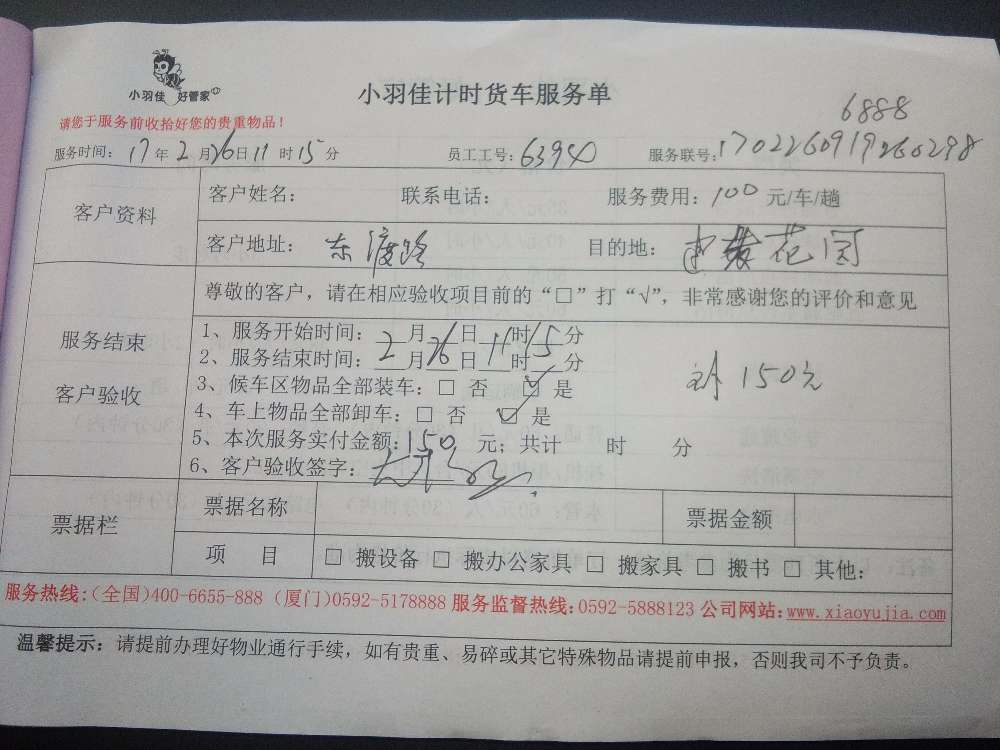 小羽佳 好管家
小羽佳计时货车服务单
请您于服务前收拾好您的贵重物品！
6888
服务时间：17年2月26日11时15分 员工工号：6394 服务联号：1702260919260298
客户资料
客户姓名： 联系电话： 服务费用：100元/车/趟
客户地址：东渡路 目的地：建发花园
服务结束
客户验收
尊敬的客户，请在相应验收项目前的“□”打“√”，非常感谢您的评价和意见
1、服务开始时间：2月26日11时15分
2、服务结束时间：月日时分
3、候车区物品全部装车：□ 否 ☑ 是
4、车上物品全部卸车：□ 否 ☑ 是
5、本次服务实付金额：150元；共计 时 分
6、客户验收签字：
150元
票据栏
票据名称 票据金额
项 目 □ 搬设备 □ 搬办公家具 □ 搬家具 □ 搬书 □ 其他：
服务热线：(全国)400-6655-888 (厦门)0592-5178888 服务监督热线：0592-5888123 公司网站：www.xiaoyujia.com
温馨提示：请提前办理好物业通行手续，如有贵重、易碎或其它特殊物品请提前申报，否则我司不予负责。